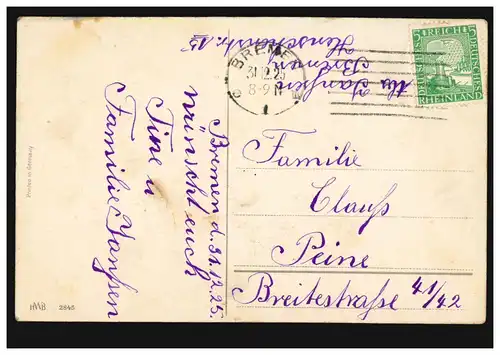 Bremen d. 31.12.25.
wünscht euch
Tine u
Familie Janßen
Familie
Clauß
Peine
Breitestraße 41/42
Janßen
Bremen
BREMEN
31.12.25
8-9 N
1
DEUTSCHES REICH
5 5
RHEINLAND
Printed in Germany
HWB 2845